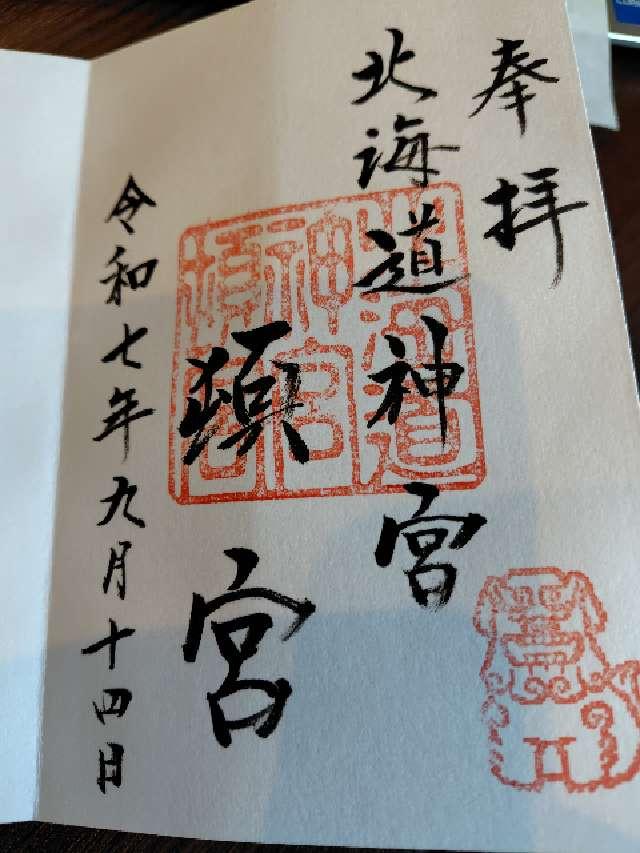 奉拝
北海道神宮
頓宮
令和七年九月十四日
北海道
神宮
頓宮